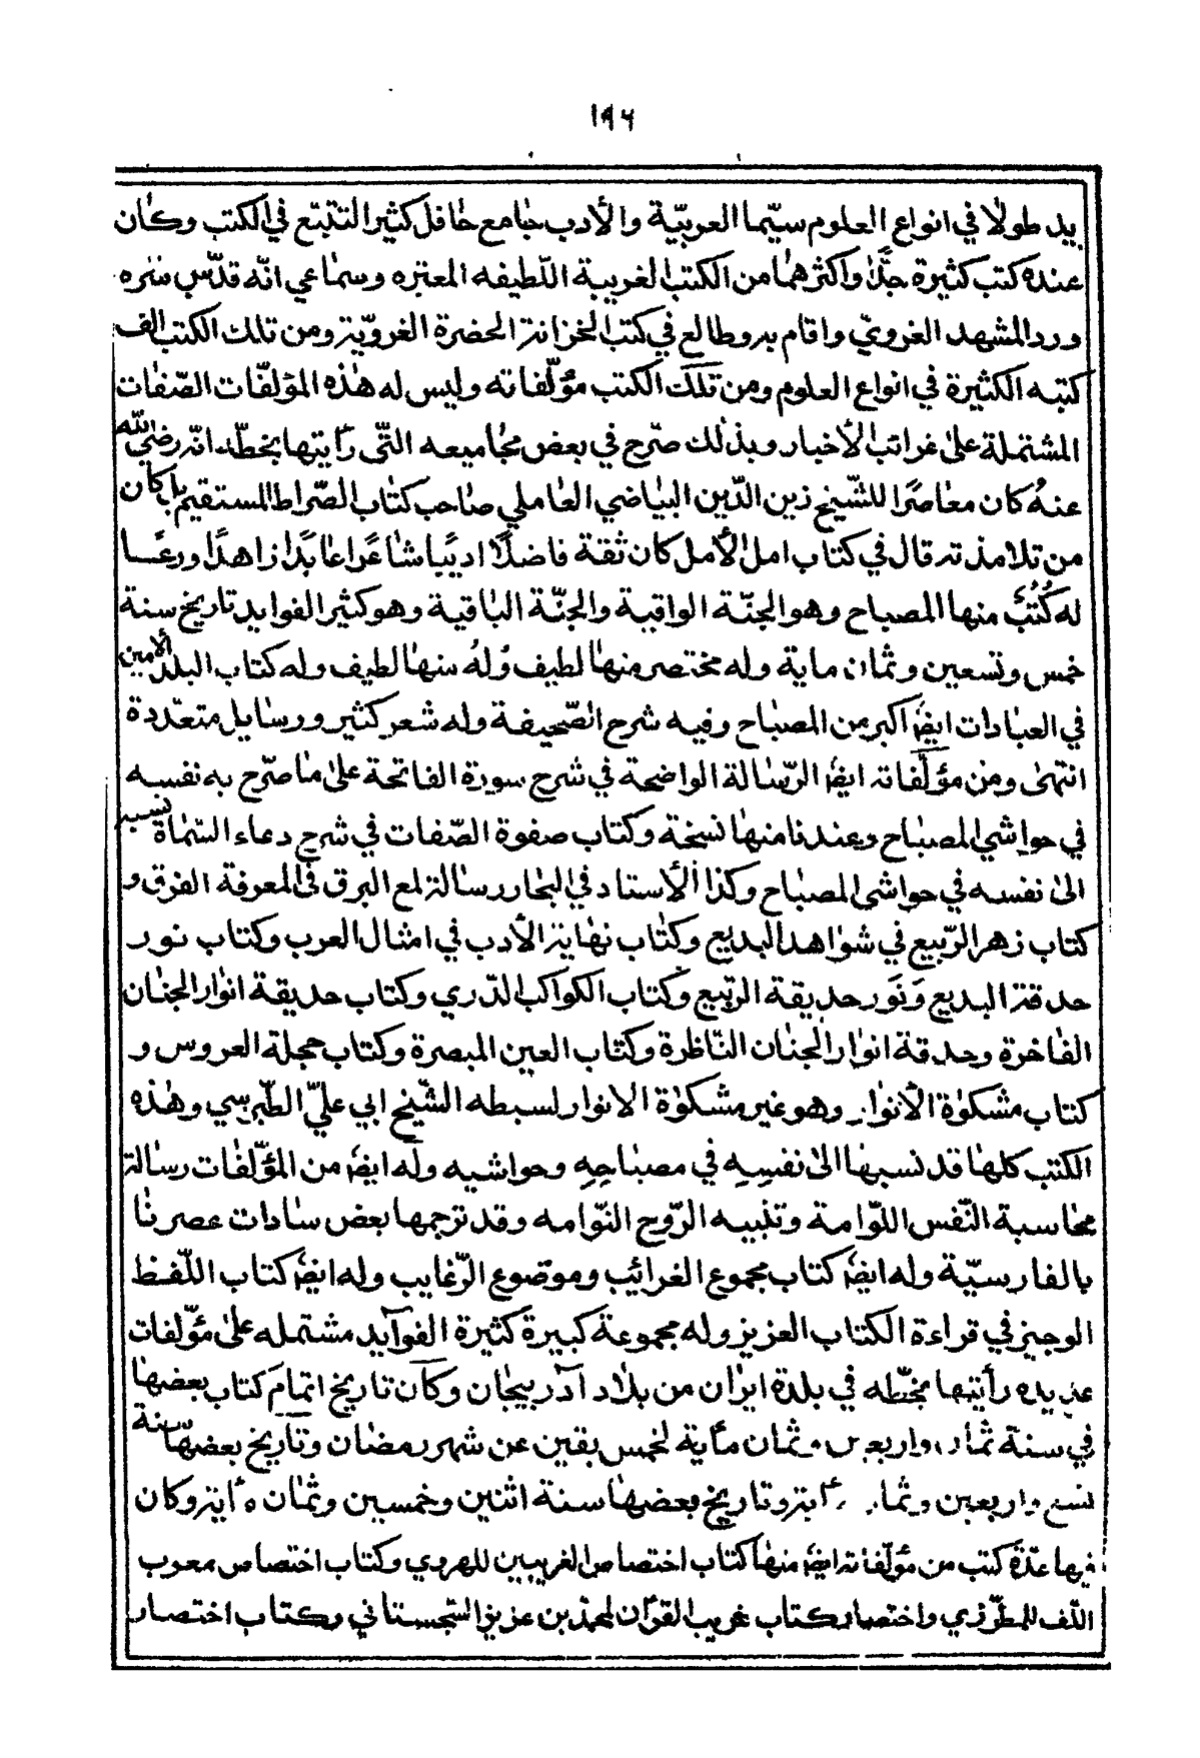 ١٩٦
يد طولا في انواع العلوم سيّما العربيّة والأدب جامع حافل كثير التتبّع في الكتب وكان
عنده كتب كثيرة جدًّا واكثرها من الكتب الغريبة اللّطيفه المعتبره وسماعي انّه قدّس سّره
ورد المشهد الغرويّ واقام به وطالع في كتب الخزانة الحضرة الغرويّة ومن تلك الكتب الف
كتبه الكثيرة في انواع العلوم ومن تلك الكتب مؤلّفاته وليس له هذه المؤلفّات الصّفات
المشتملة على غرائب الأخبار وبذلك صرّح في بعض مجاميعه التّى رأيتها بخطّه انّه رضي الله
عنه كان معاصرًا للشّيخ زين الدّين البياضي العاملي صاحب كتاب الصّراط المستقيم بل كان
من تلامذته قال في كتاب امل الأمل كان ثقة فاضلًا اديبًا شاعًرا عابدًا زاهدًا ورعًا
له كُتُبٌ منها المصباح وهو الجنّة الواقية والجنّة الباقية وهو كثير الفوايد تاريخ سنة
خمس وتسعين وثمان ماية وله مختصر منها لطيف وله منها لطيف وله كتاب البلد الأمين
في العبادات ايضًا اكبر من المصباح وفيه شرح الصّحيفة وله شعر كثير ورسايل متعدّدة
انتهى ومن مؤلّفاته ايضًا الرّسالة الواضحة في شرح سورة الفاتحة على ما صرّح به نفسه
في حواشي المصباح وعندنا منها نسخة وكتاب صفوة الصّفات في شرح دعاء السّماة نسبه
الى نفسه في حواشى المصباح وكذا الأستاد في البحار رسالة لمع البرق فى المعرفة الفرق و
كتاب زهر الرّبيع في شواهد البديع وكتاب نهاية الأدب في امثال العرب وكتاب نور
حدقة البديع وَنَور حديقة الربّيع وكتاب الكواكب الدّري وكتاب حديقة انوار الجنان
الفاخرة وحدقة انوار الجنان النّاظرة وكتاب العين المبصرة وكتاب حجلة العروس و
كتاب مشكوة الأنوار وهو غير مشكوة الانوار لسبطه الشّيخ ابي عليّ الطّبرسي وهذه
الكتب كلها قد نسبها الى نفسِهِ في مصباحِهِ وحواشيه وله ايضًا من المؤلّفات رسالة
محاسبة النّفس اللوّامة وتنبيه الرّوح النّوامه وقد ترجمها بعض سادات عصرنا
بالفارسيّة وله ايضًا كتاب مجموع الغرائب وموضوع الرّغايب وله ايضًا كتاب اللّفظ
الوجيز في قراءة الكتاب العزيز وله مجموعة كبيرة كثيرة الفوآيد مشتمله على مؤلّفات
عديده رأيتها بخطّه في بلدة ايران من بلاد آذربيجان وكان تاريخ اتمام كتاب بعضها
في سنة ثمان واربعين وثمان مأية لخمس بقين عن شهر رمضان وتآريخ بعضها سنة
تسع واربعين وثمان مأية وتاريخ بعضها سنة اثنين وخمسين وثمان مأية وكان
فيها عدّة كتب من مؤلّفاته ايضًا منها كتاب اختصاص الغريبين للهروي وكتاب اختصاص معرب
اللّف للمطرّزي واختصار كتاب غريب القرآن لمحمّد بن عزيز السّجستاني وكتاب اختصار